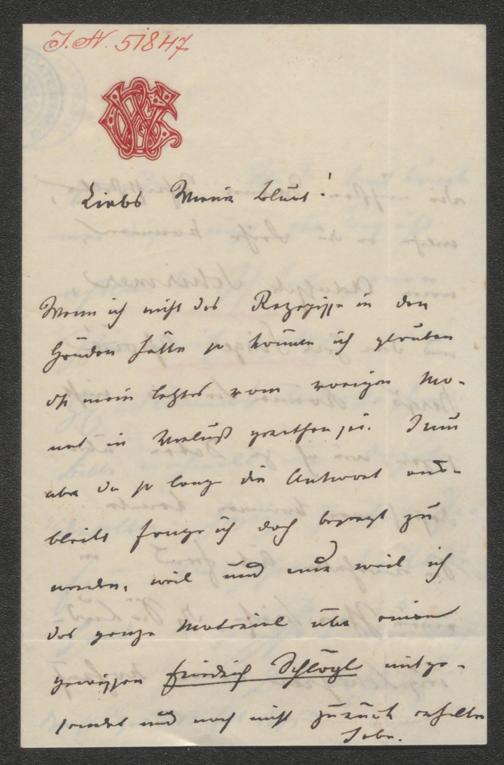 J. N. 51847
Liebs Wiener Blut!
Wenn ich nicht das Rezepisse in den
Händen hätte so könnte ich glauben
daß mein letztes vom vorigen Mo-
nat in Verlust gerathen sei. Nun
aber da so lange die Antwort aus-
bleibt fange ich doch besorgt zu
werden, weil und weil ich
das ganze Material über einen
gewissen Friedrich Schlögl mitge-
sendet und noch nicht zurück erhalten
habe.